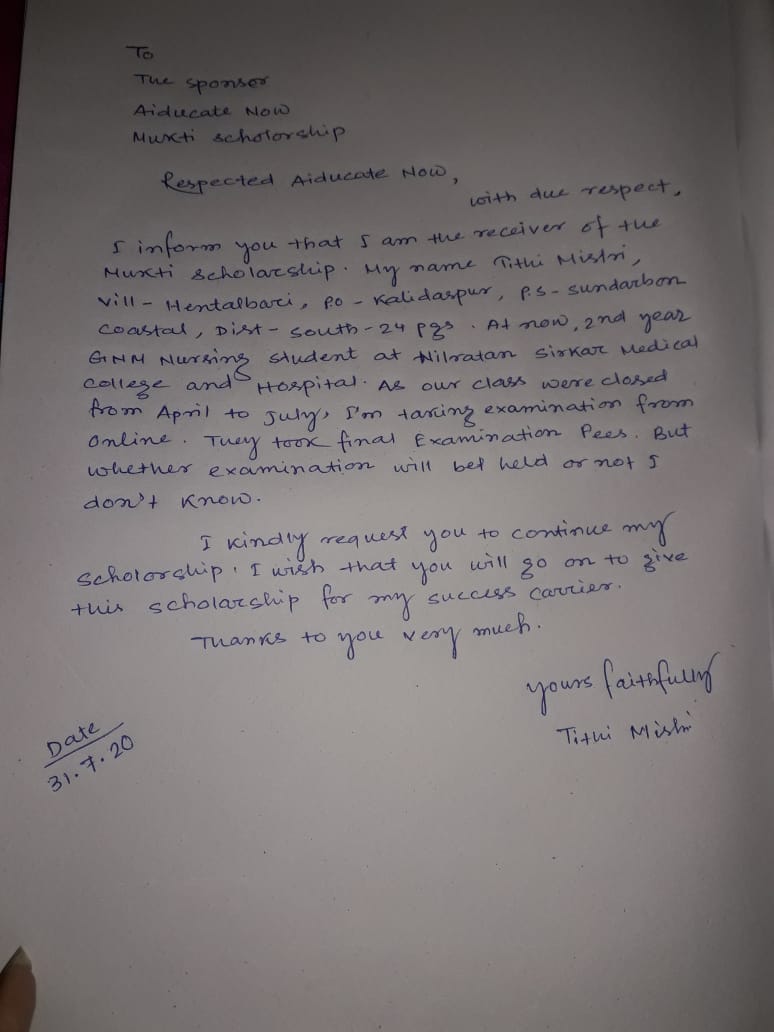 To
The sponsor
Aiducate Now
Mukti scholorship
Respected Aiducate Now,
with due respect,
I inform you that I am the receiver of the
Mukti scholarship. My name Tithi Mistri,
vill - Hentalbari, P.O - Kalidaspur, P.S - Sundarbon
coastal, Dist - South - 24 pgs. At now, 2nd year
GNM Nursing student at Nilratan Sirkar Medical
College and Hospital. As our class were closed
from April to July, I'm taking examination from
online. They took final Examination Pees. But
whether examination will bet held or not I
don't know.
I kindly request you to continue my
scholorship. I wish that you will go on to give
this scholarship for my success carrier.
Thanks to you very much.
yours faithfully
Tithi Mistri
Date
31.7.20